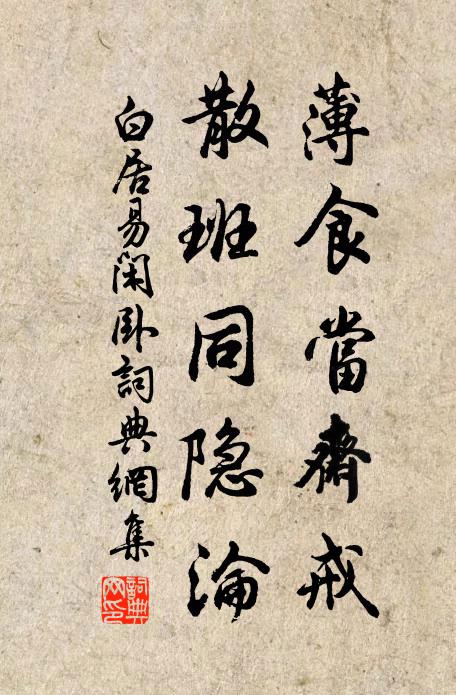 薄食當齋戒
散班同隐淪
白居易閑卧詞典網集
詞典
网印